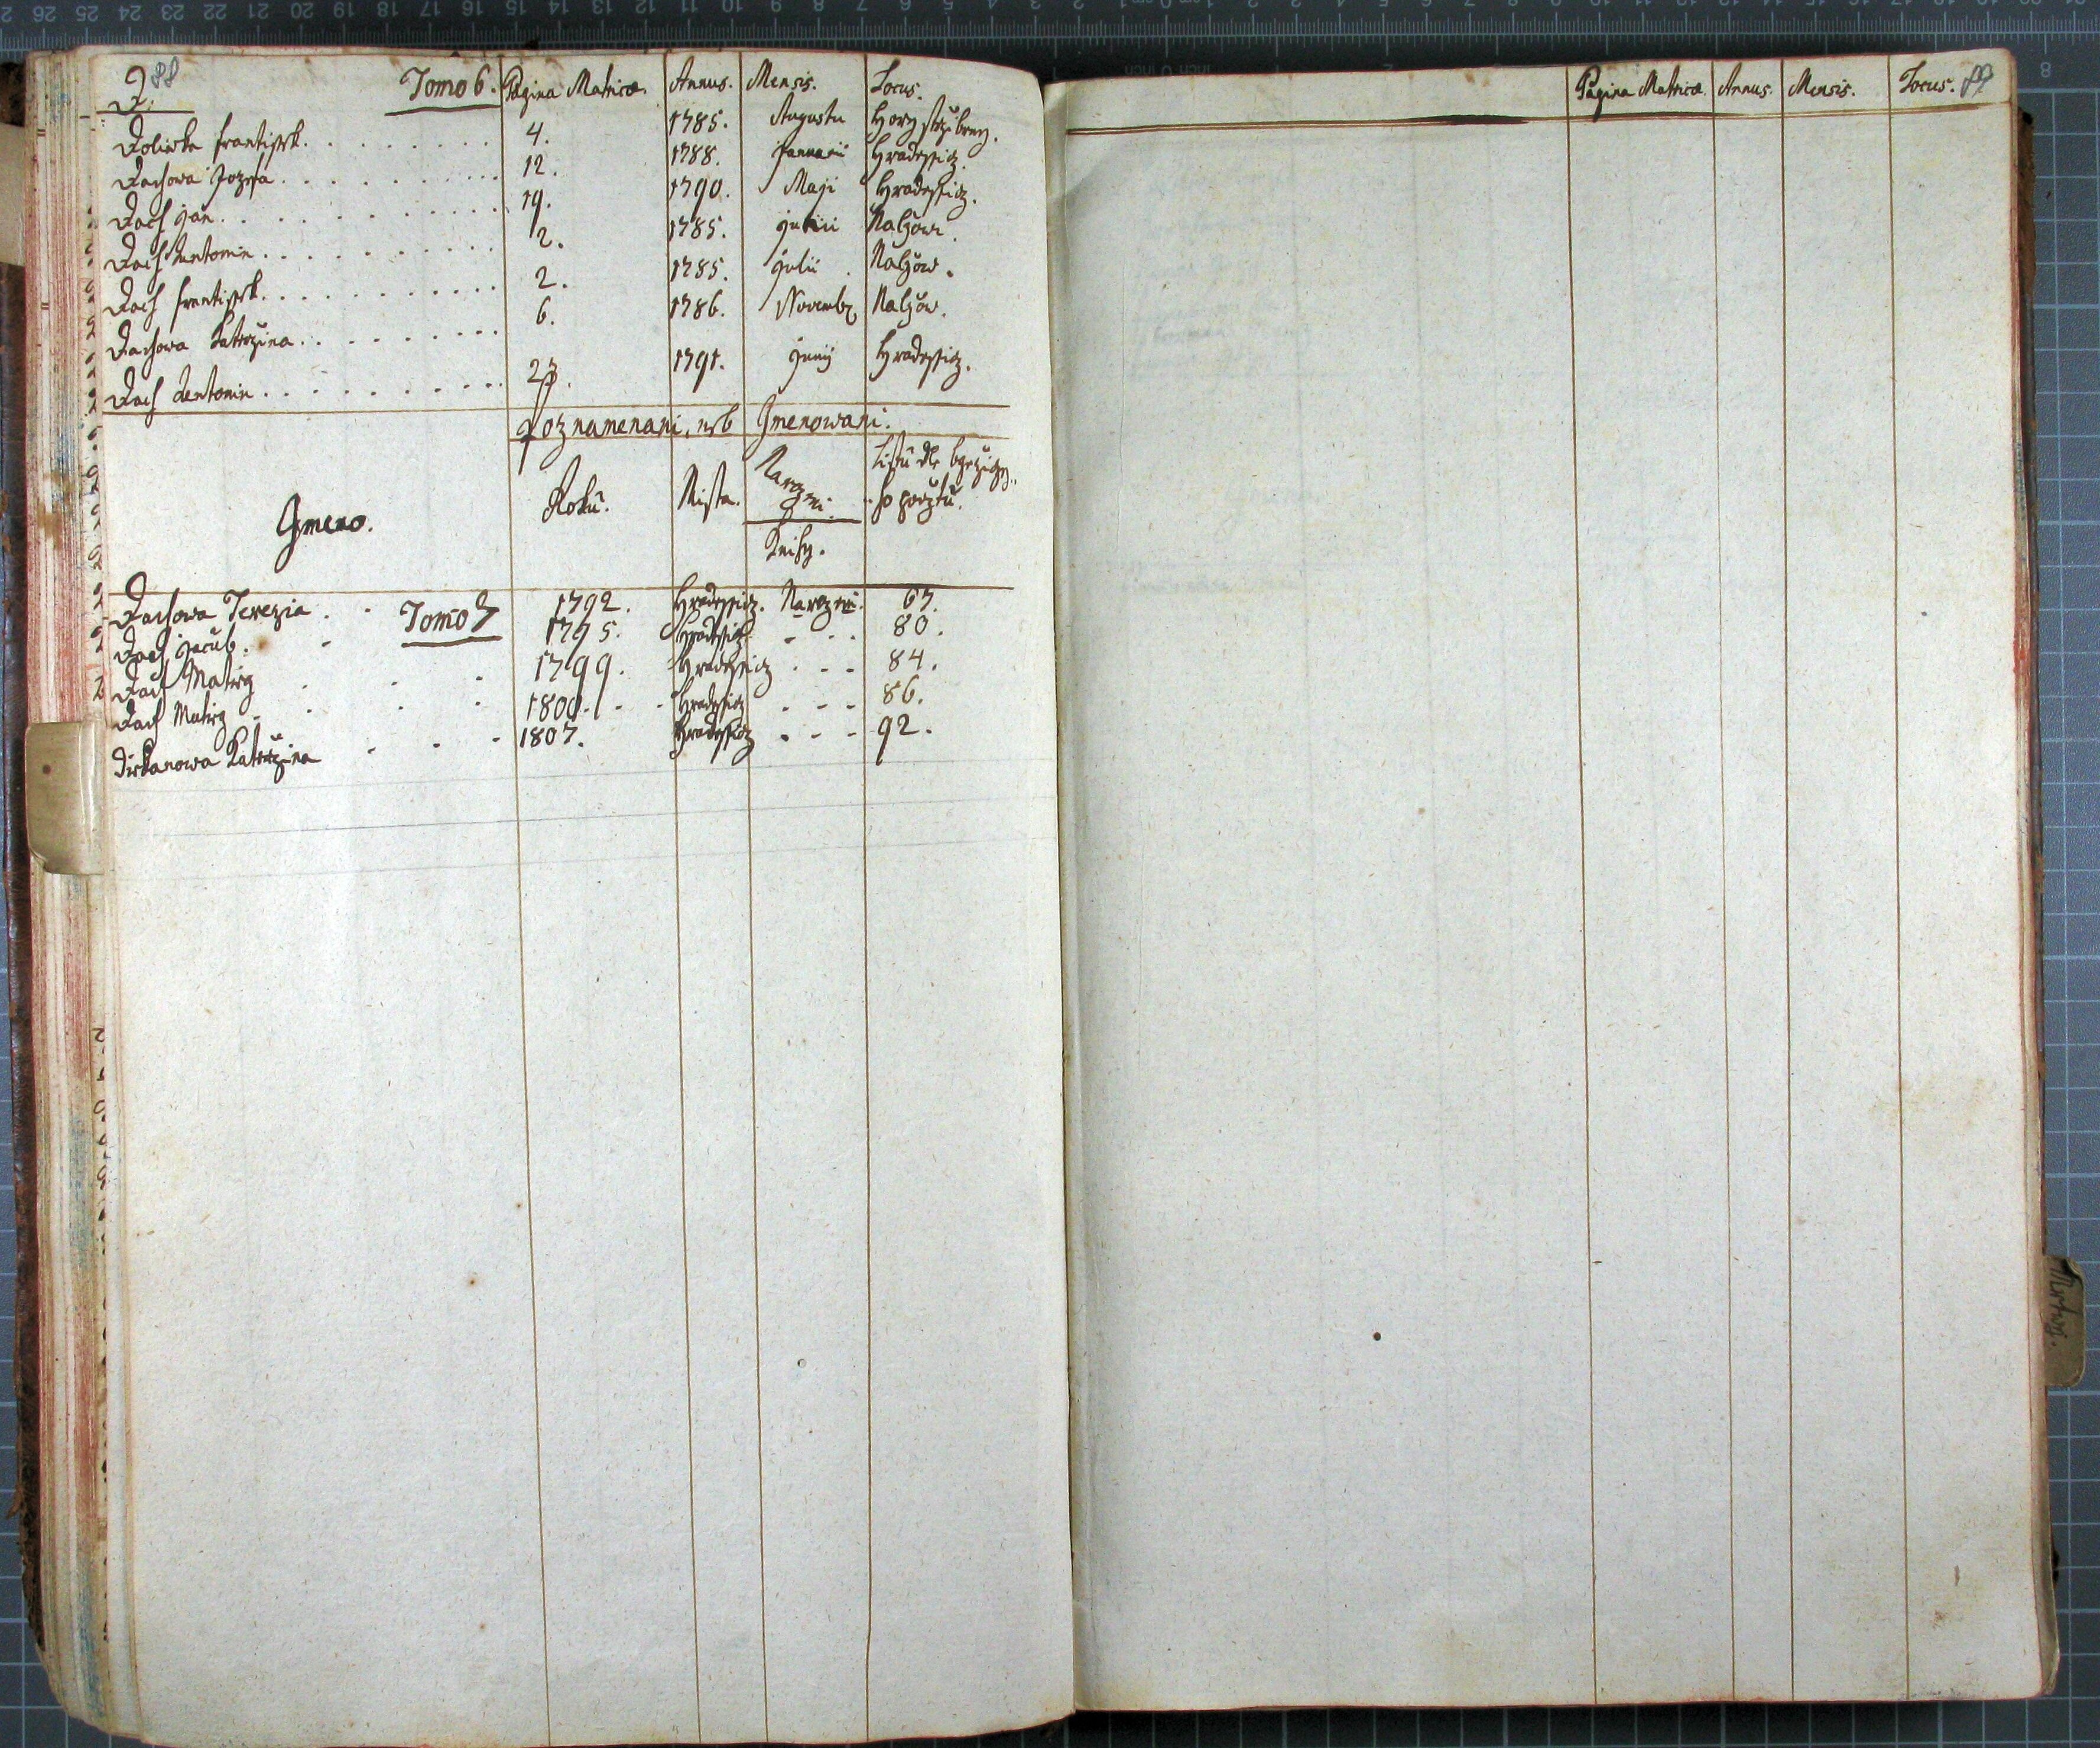 88
D. Tomo 6. Pagina Matricæ. Annus. Mensis. Locus.
Doliwka Frantissek. 4. 1785. Augustu Hory strzibrny.
Dachowa Jozefa 12. 1788. Januarii Hradessicz.
Dach Jan. 19. 1790. Maji Hradessicz.
Dach Antonin. 2. 1785. Julii Nalžow.
Dach Frantissek. 2. 1785. Julii Nalžow.
Dachowa Katerzina. 6. 1786. Novembr. Nalžow.
Dach Antonin. 23. 1791. Junij Hradessicz.
poznamenani, neb Gmenowani.
Gmeno. Roku. Mista. Narozeni. Knihy. Listu dle
ho pocžtu.
Dachowa Terezia. Tomo 7 1792. Hradessicz. Narozeni. 67.
Dach Jacub. 1795. Hradessicz 80.
Dach Matieg 1799. Hradessicz 84.
Dach Matieg 1800. Hradessicz 86.
Katerzina 1807. Hradessicz 92.
89
Pagina Matricæ. Annus. Mensis. Locus.